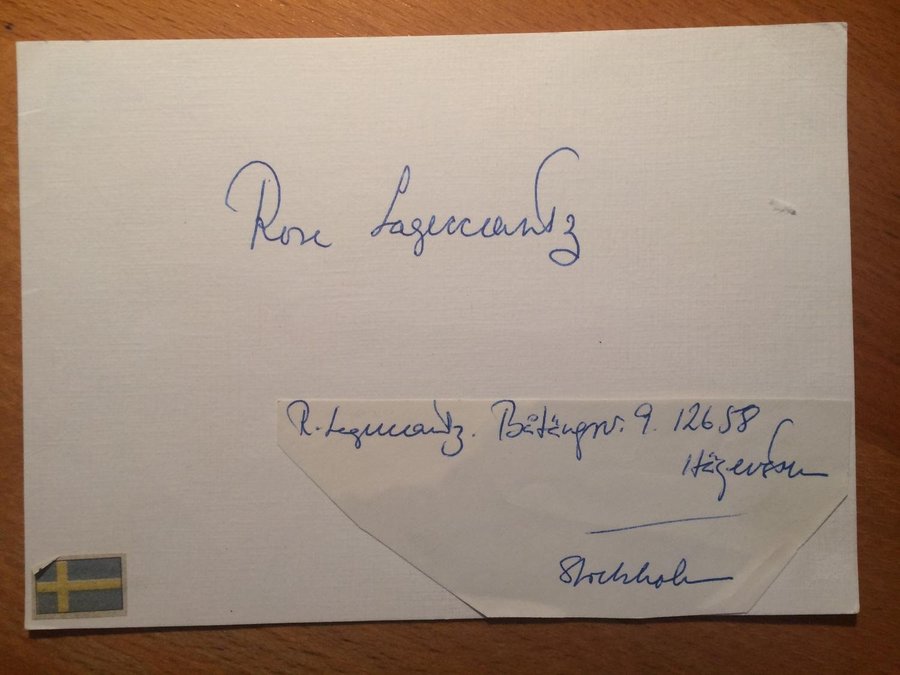 Rose Lagercrantz
R. Lagercrantz. Båtängsv. 9. 12658
Hägersten
Stockholm